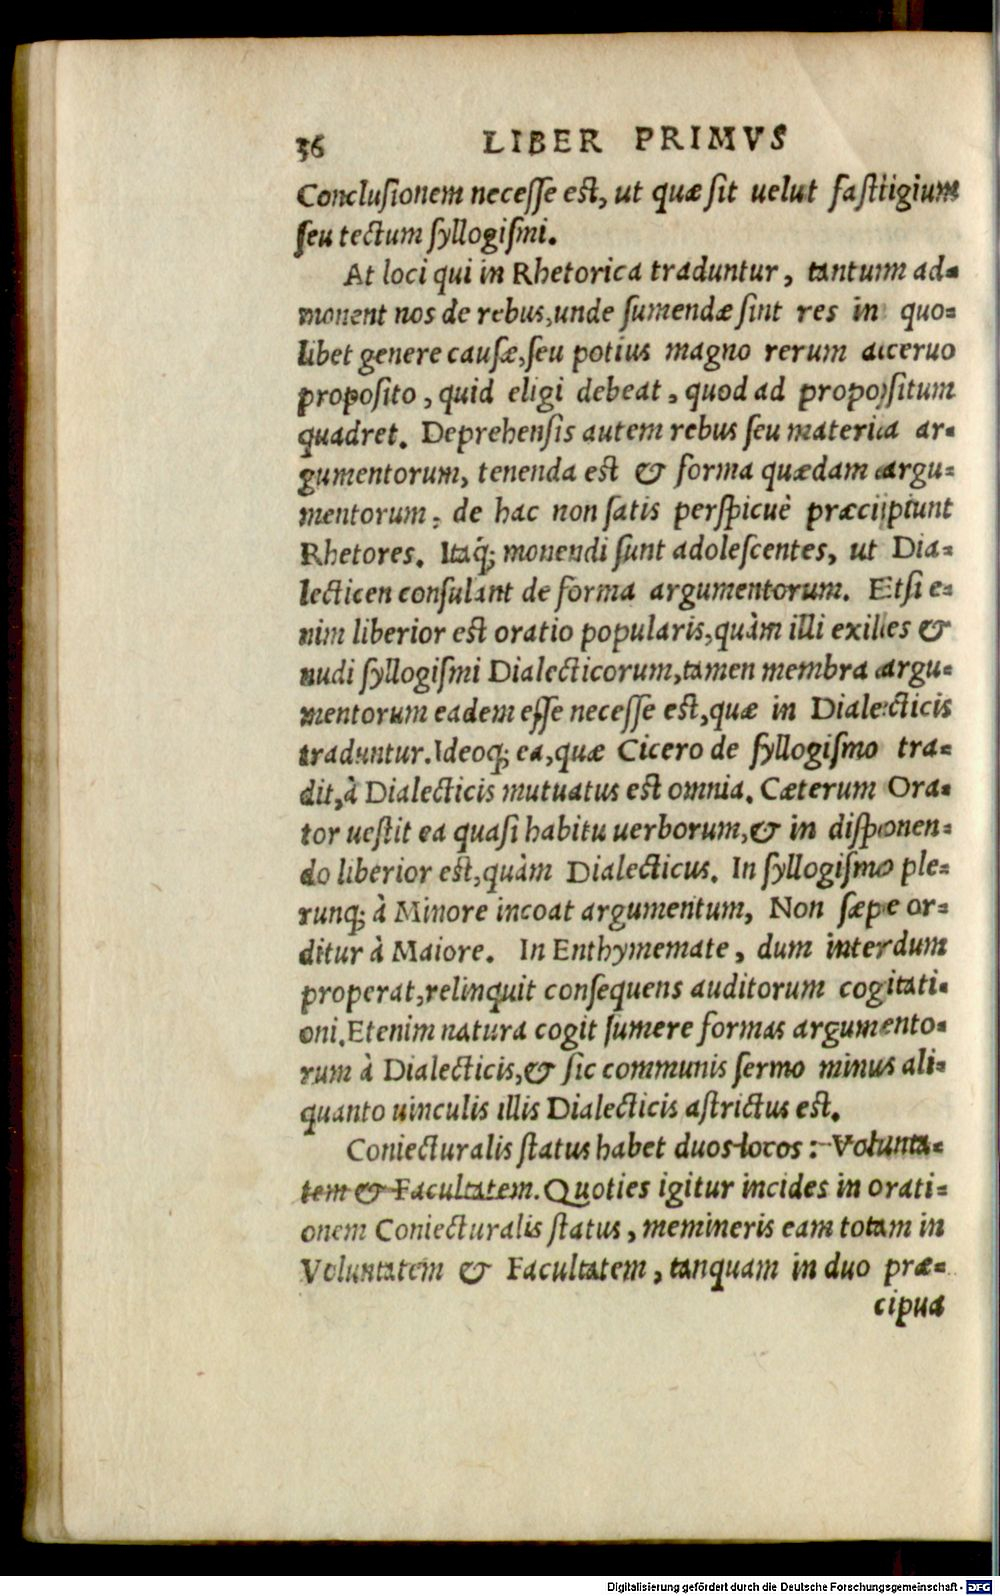 36 LIBER PRIMVS
Conclusionem necesse est, ut quæ sit uelut fastigium
seu tectum syllogismi.
At loci qui in Rhetorica traduntur, tantum ad=
monent nos de rebus, unde sumendæ sint res in quo=
libet genere causæ, seu potius magno rerum aceruo
proposito, quid eligi debeat, quod ad propositum
quadret. Deprehensis autem rebus seu materia ar=
gumentorum, tenenda est & forma quædam argu=
mentorum: de hac non satis perspicuè præcipiunt
Rhetores. Itaq; monendi sunt adolescentes, ut Dia=
lecticen consulant de forma argumentorum. Etsi e=
nim liberior est oratio popularis, quàm illi exiles &
nudi syllogismi Dialecticorum, tamen membra argu=
mentorum eadem esse necesse est, quæ in Dialecticis
traduntur. Ideoq; ea, quæ Cicero de syllogismo tra=
dit, à Dialecticis mutuatus est omnia. Cæterum Ora=
tor uestit ea quasi habitu uerborum, & in disponen=
do liberior est, quàm Dialecticus. In syllogismo ple=
runq; à Minore incoat argumentum, Non sæpe or=
ditur à Maiore. In Enthymemate, dum interdum
properat, relinquit consequens auditorum cogitati=
oni. Etenim natura cogit sumere formas argumento=
rum à Dialecticis, & sic communis sermo minus ali=
quanto uinculis illis Dialecticis astrictus est.
Coniecturalis status habet duos locos: Volunta=
tem & Facultatem. Quoties igitur incides in orati=
onem Coniecturalis status, memineris eam totam in
Voluntatem & Facultatem, tanquam in duo præ=
cipua
Digitalisierung gefördert durch die Deutsche Forschungsgemeinschaft - DFG